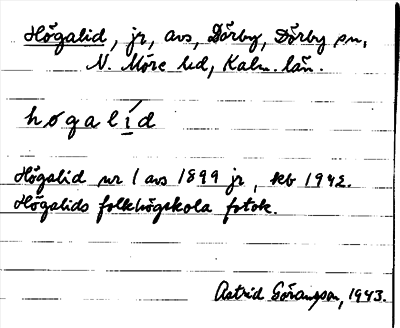 Högalid, jr, avs, Dörby, Dörby sn,
N. Möre hd, Kalm. län.
høgalíd
Högalid nr 1 avs 1899 jr, kb 1942.
Högalids folkhögskola fotok.
Astrid Göransson, 1943.